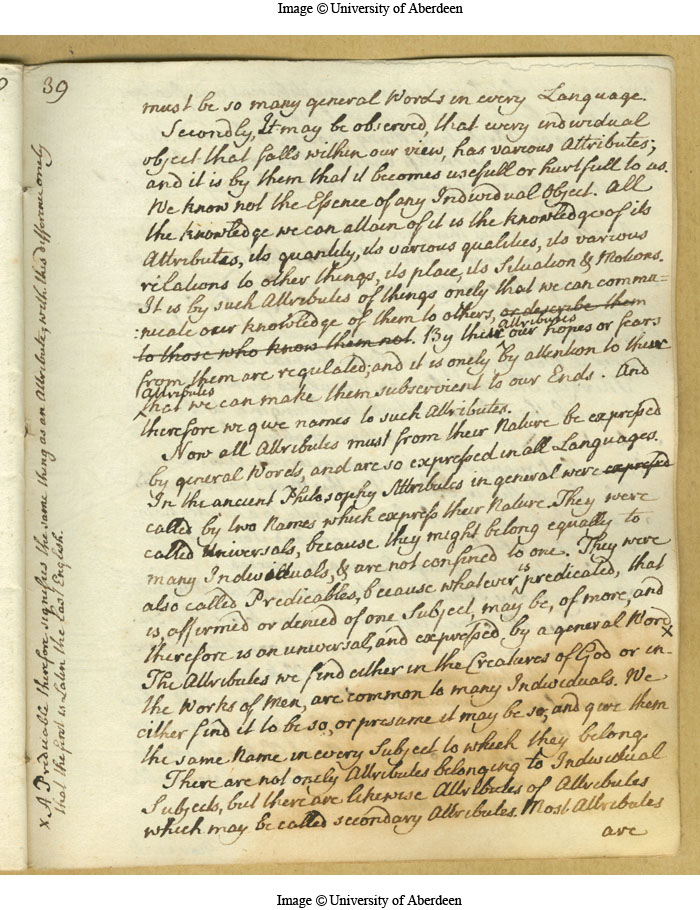 Image © University of Aberdeen
39
must be so many general Words in every Language.
Secondly, It may be observed, that every individual
object that falls within our view, has various Attributes;
and it is by them that it becomes usefull or hurtfull to us.
We know not the Essence of any Individual Object. All
the knowledge we can attain of it is the knowledge of its
Attributes, its quantity, its various qualities, its various
relations to other things, its place, its Situation & Motions.
It is by such Attributes of things onely that we can commu-
:nicate our knowledge of them to others, or describe them
to those who know them not. By their Attributes our hopes or fears
from them are regulated; and it is onely by attention to their
Attributes
that we can make them subservient to our Ends. And
therefore we give names to such Attributes.
Now all Attributes must from their Nature be expressed
by general Words, and are so expressed in all Languages.
In the ancient Philosophy Attributes in general were expressed
called by two Names which express their Nature. They were
called Universals, because they might belong equally to
many Individuals, & are not confined to one. They were
also called Predicables, because whatever is predicated, that
is, affirmed or denied of one Subject, may be, of more, and
therefore is an universal, and expressed by a general Word x
The Attributes we find either in the Creatures of God or in
the Works of Men, are common to many Individuals. We
either find it to be so, or presume it may be so, and give them
the same Name in every Subject to which they belong.
There are not onely Attributes belonging to Individual
Subjects, but there are likewise Attributes of Attributes
which may be called secondary Attributes. Most Attributes
are
x A Predicable therefore signifies the same thing as an Attribute, with this difference onely
that the first is Latin the last English.
Image © University of Aberdeen